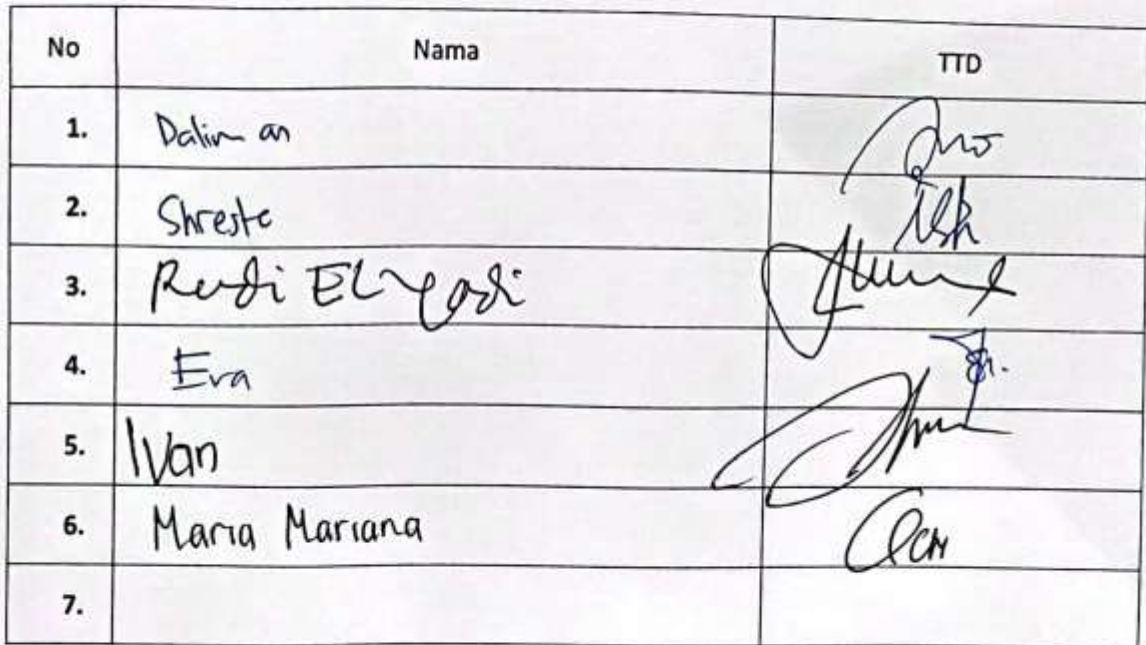 No Nama TTD
1. Daliman
2. Shreste
3. Rudi Elyadi
4. Eva
5. Ivan
6. Maria Mariana
7.